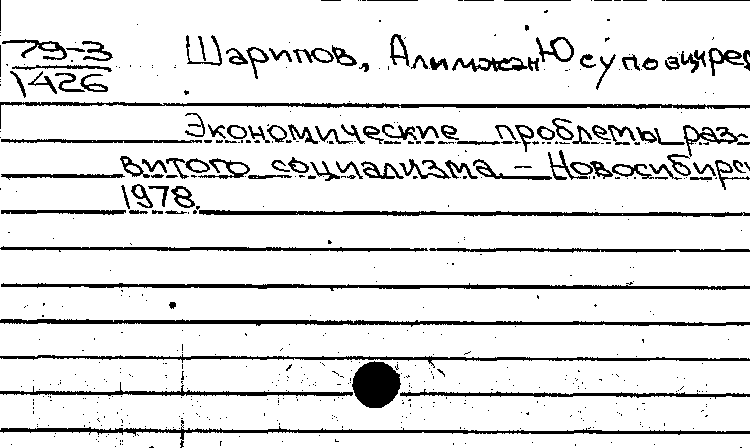 79-3
1426
Шарипов, Алимжан Юсупович, ред
Экономические проблемы раз-
витого социализма. – Новосибирс
1978.